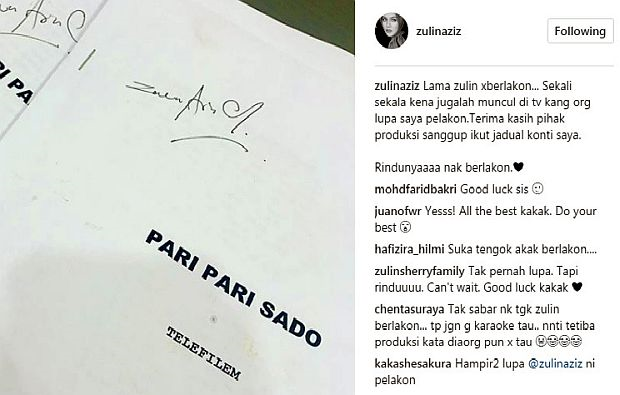 RI PA
Zulin Aziz
PARI PARI SADO
TELEFILEM
zulinaziz
Following
zulinaziz Lama zulin xberlakon... Sekali
sekala kena jugalah muncul di tv kang org
lupa saya pelakon.Terima kasih pihak
produksi sanggup ikut jadual konti saya.
Rindunyaaaa nak berlakon.🖤
mohdfaridbakri Good luck sis 🙂
juanofwr Yesss! All the best kakak. Do your
best 😮
hafizira_hilmi Suka tengok akak berlakon....
zulinsherryfamily Tak pernah lupa. Tapi
rinduuuu. Can't wait. Good luck kakak 🖤
chentasuraya Tak sabar nk tgk zulin
berlakon... tp jgn g karaoke tau.. nnti tetiba
produksi kata diaorg pun x tau 😆😆😆😆
kakashesakura Hampir2 lupa @zulinaziz ni
pelakon